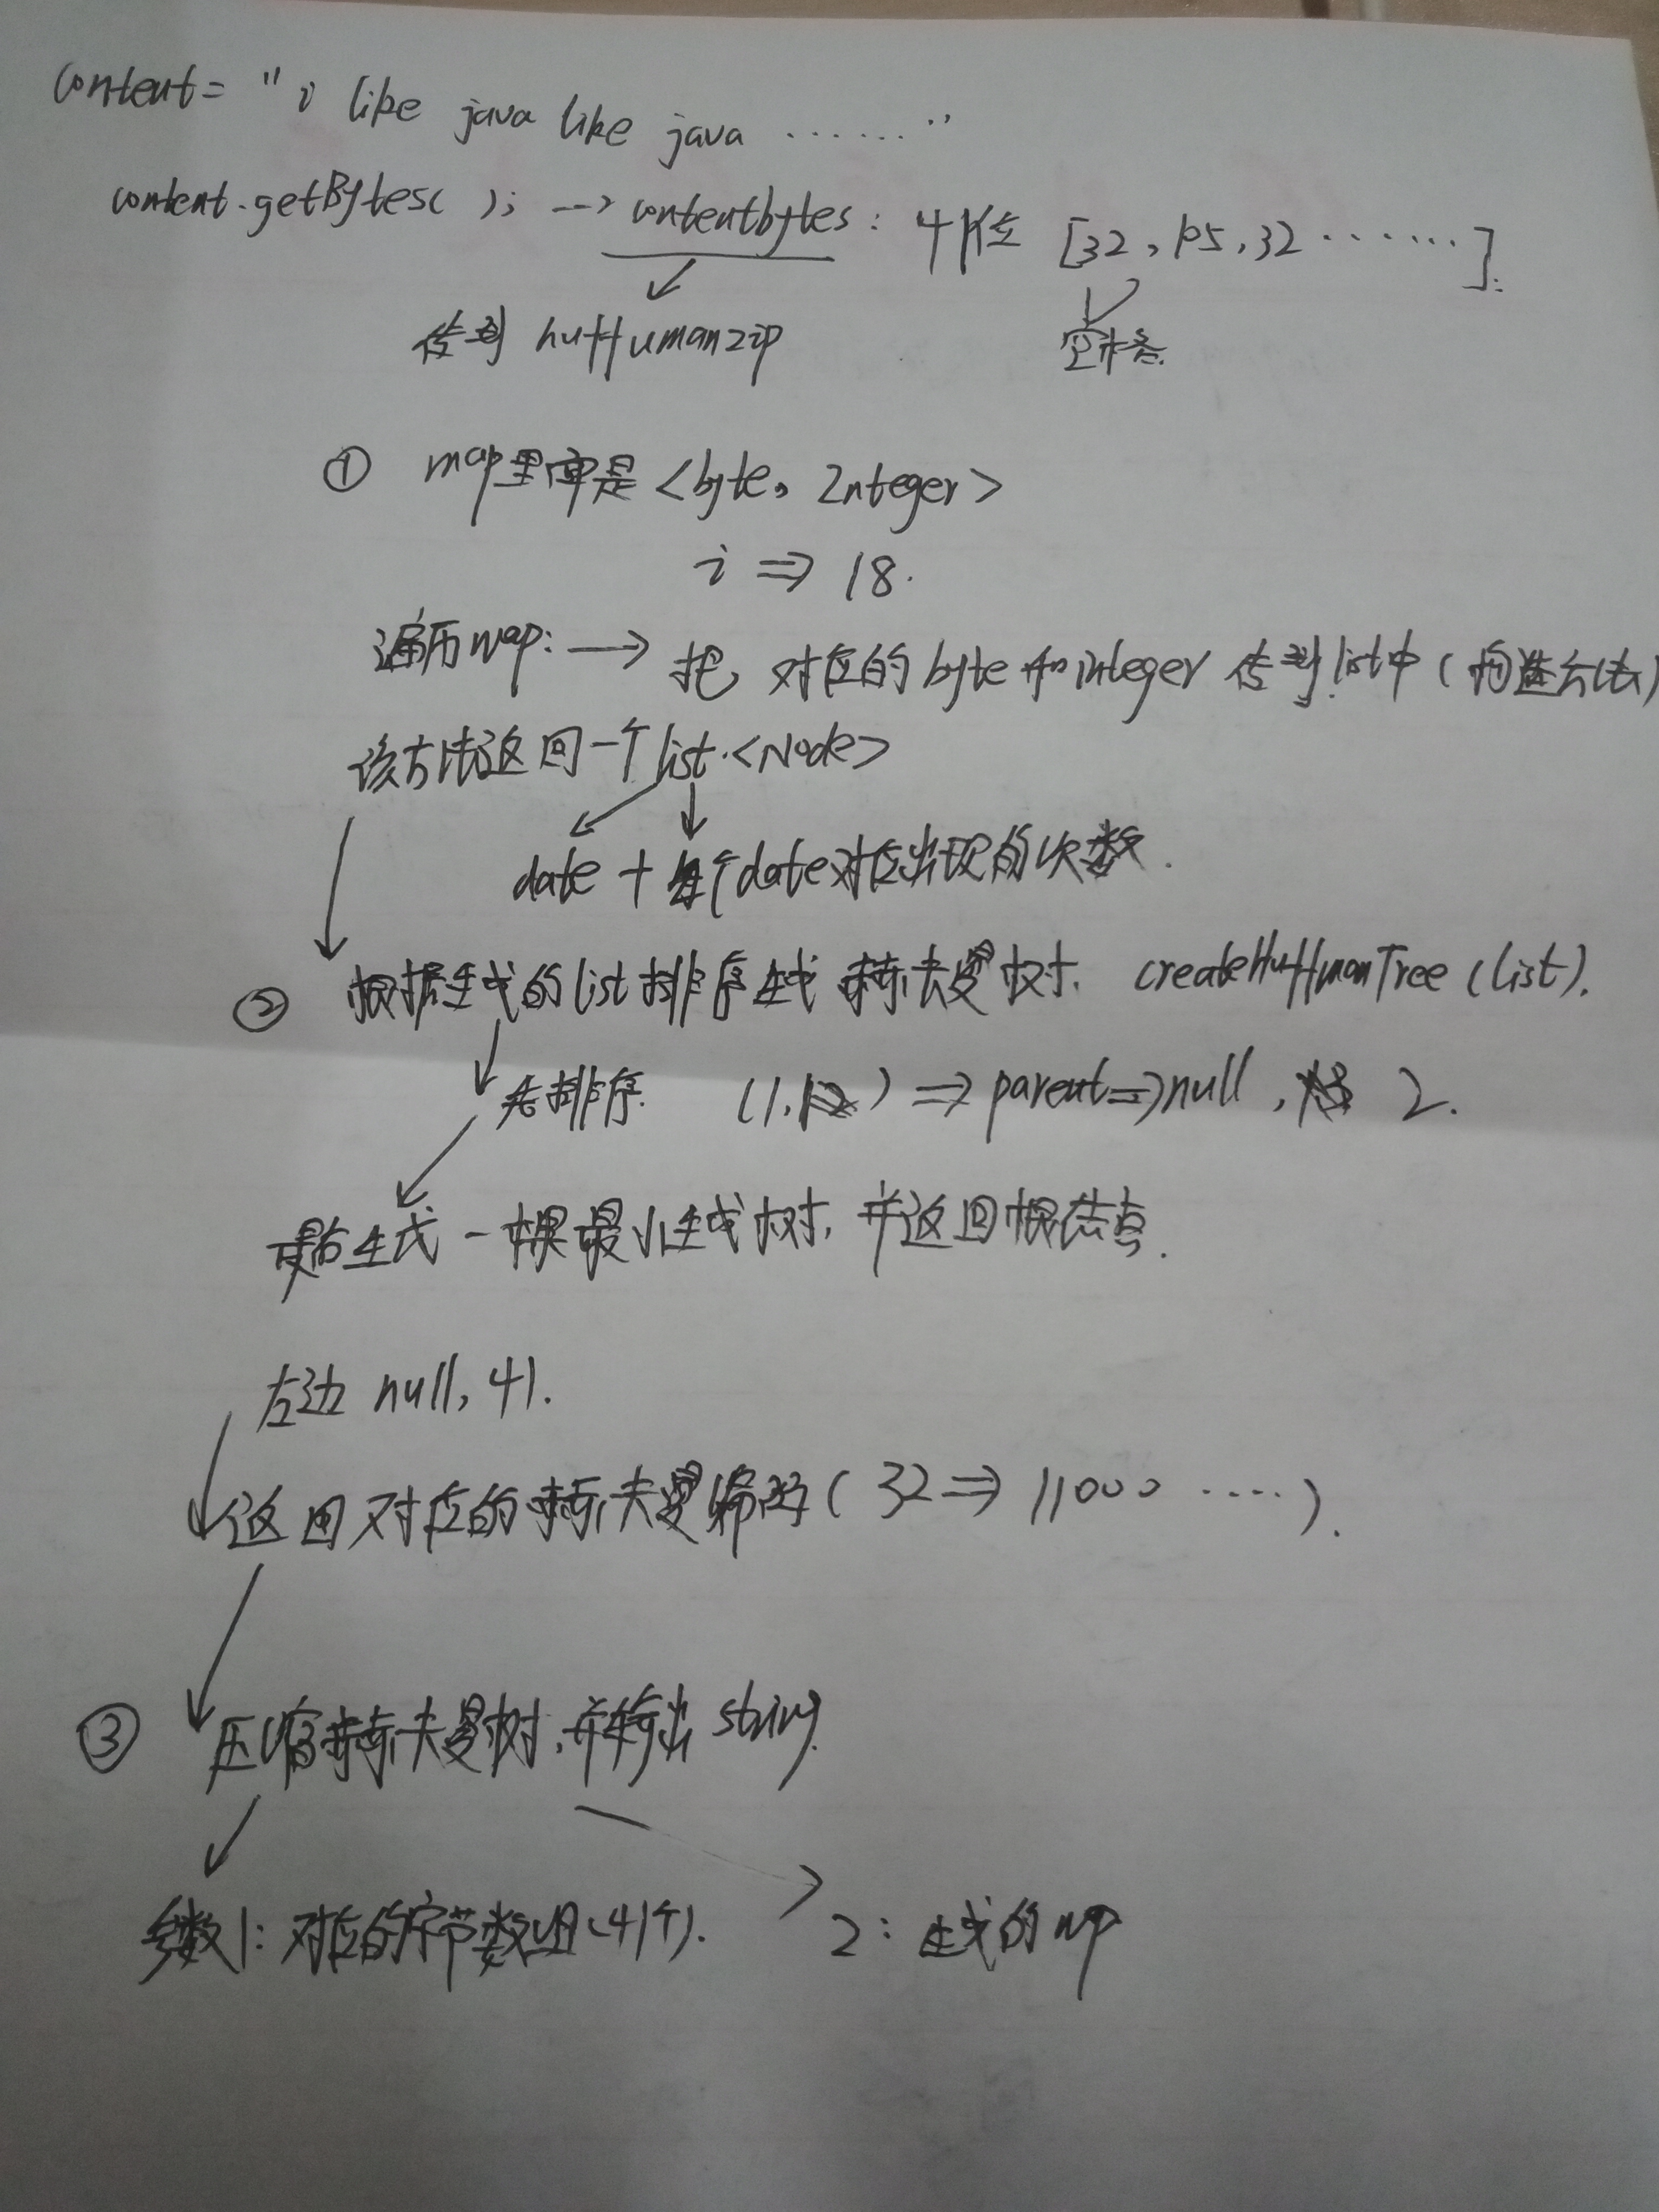 content = " i like java like java ······· "
content.getBytes( ); → contentbytes: 41位 [32, 105, 32 ······].
传到 huffumanzip 空格.
① map里面是 <byte, Integer>
i ⇒ 18.
遍历map: → 把 对应的byte和integer 传到list中 (构造方法)
该方法返回一个list.<Node>
date + 每个date对应出现的次数.
② 根据生成的list排序生成 赫夫曼树. createHuffmanTree (list).
先排序. (1, ) ⇒ parent ⇒ null, 2.
最后生成一棵最小生成树, 并返回根结点.
左边 null, 41.
返回对应的赫夫曼编码 ( 32 ⇒ 11000 ····).
③ 压缩赫夫曼树, 并输出 string.
参数1: 对应的字节数组(41个). 2: 生成的map